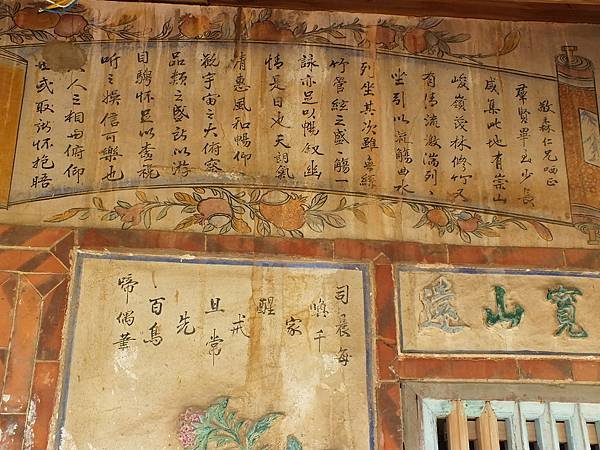 敬森仁兄哂正
群賢畢至少長
咸集此地有崇山
峻嶺茂林修竹又
有清流激湍列
坐引以流觴曲水
列坐其次雖無絲
竹管絃之盛一觴一
詠亦足以暢敘幽
情是日也天朗氣
清惠風和暢仰
觀宇宙之大俯察
品類之盛所以游
目騁怀足以
听之信可樂也
人之相與俯仰
世或取諸怀抱晤
寬山遠
司晨每
喚千
家
醒
戒
旦常
先
百鳥
啼偶筆